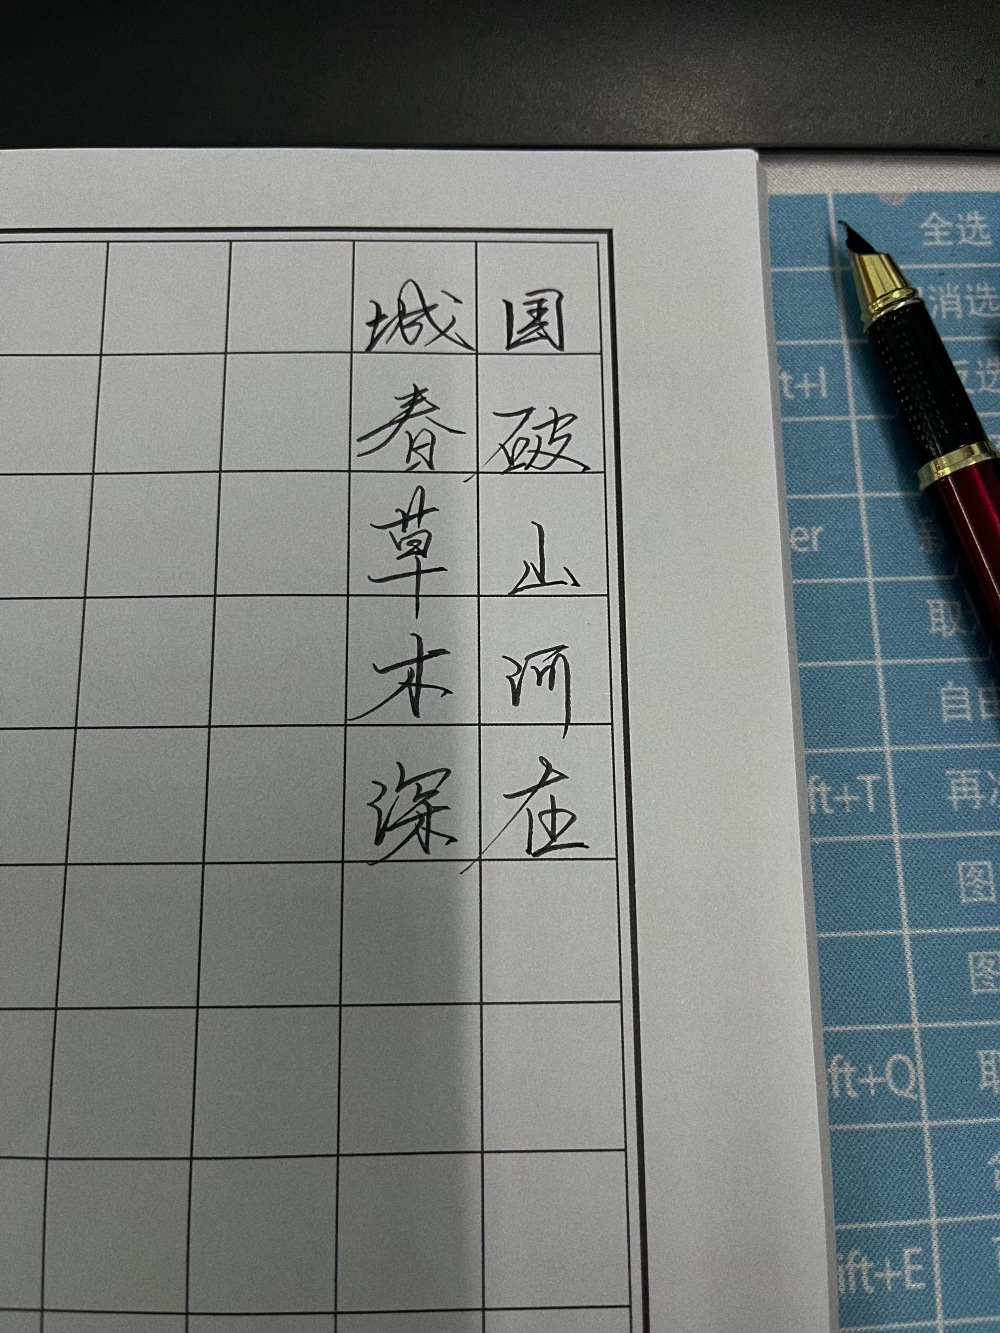 国破山河在
城春草木深
全选
消选
ft+I
反选
er
取
自由
ft+T
再次
图
图
ft+Q
ift+E